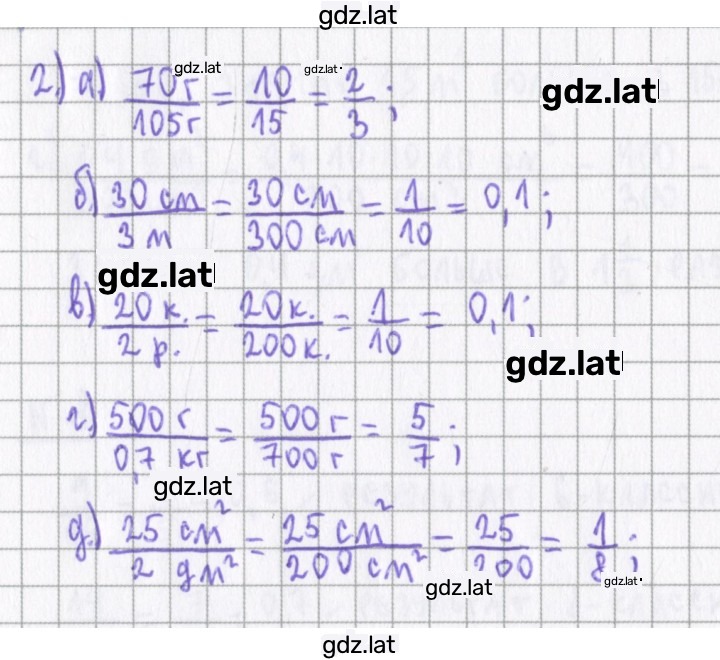 gdz.lat
2.) а) 70г/105г = 10/15 = 2/3;
gdz.lat
gdz.lat
gdz.lat
б) 30 см/3 м = 30 см/300 см = 1/10 = 0,1;
gdz.lat
в) 20 к./2 р. = 20к./200к. = 1/10 = 0,1;
gdz.lat
г.) 500 г/0,7 кг = 500 г/700 г = 5/7;
gdz.lat
д.) 25 см²/2 дм² = 25 см²/200 см² = 25/200 = 1/8;
gdz.lat
gdz.lat
gdz.lat